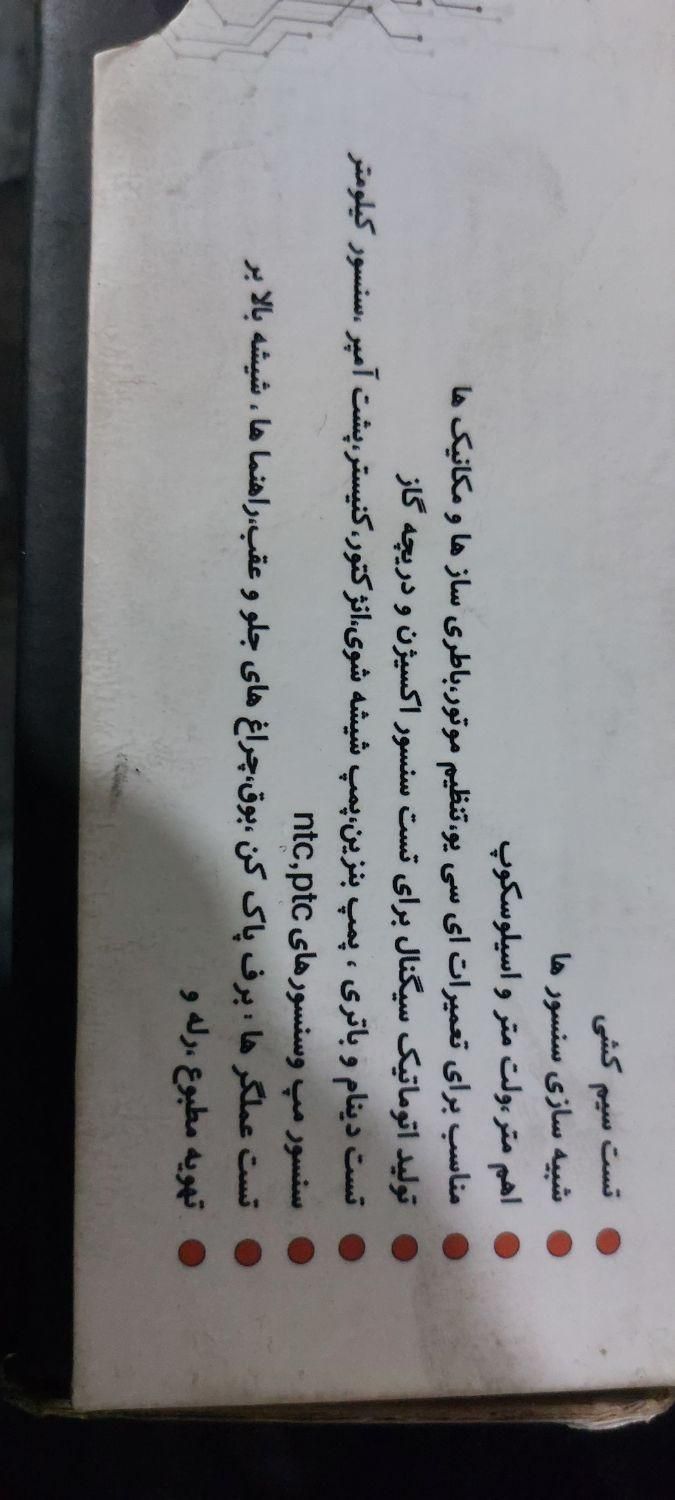 تست سیم کشی
شبیه سازی سنسور ها
اهم متر ،ولت متر و اسیلوسکوپ
مناسب برای تعمیرات ای سی یو،تنظیم موتور،باطری ساز ها و مکانیک ها
تولید اتوماتیک سیگنال برای تست سنسور اکسیژن و دریچه گاز
تست دینام و باتری ، پمپ بنزین،پمپ شیشه شوی،انژکتور،کنیستر،پشت آمپر ،سنسور کیلومتر
سنسور مپ وسنسورهای ntc,ptc
تست عملگر ها ، برف پاک کن ،بوق،چراغ های جلو و عقب،راهنما ها ، شیشه بالا بر
تهویه مطبوع ،رله و